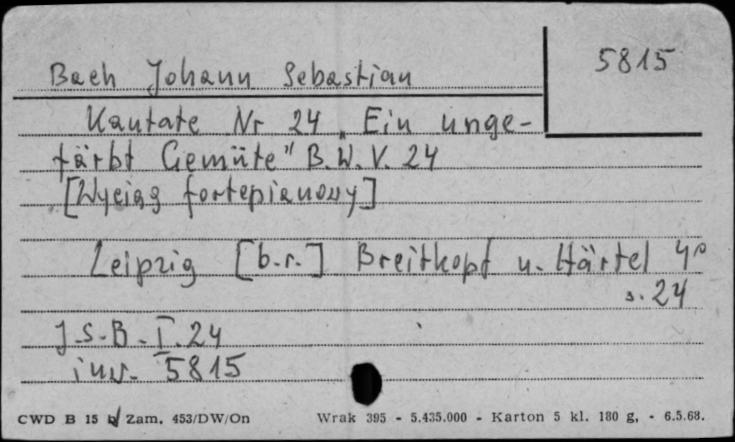 5815
Bach Johann Sebastian
Kantate Nr 24 „Ein unge-
färbt Gemüte" B.W.V. 24
[Wyciąg fortepianowy]
Leipzig [b.r.] Breitkopf u. Härtel 4°
s. 24
J.S.B. I. 24
inw. 5815
CWD B 15 Zam. 453/DW/On Wrak 395 - 5.435.000 - Karton 5 kl. 180 g, - 6.5.68.